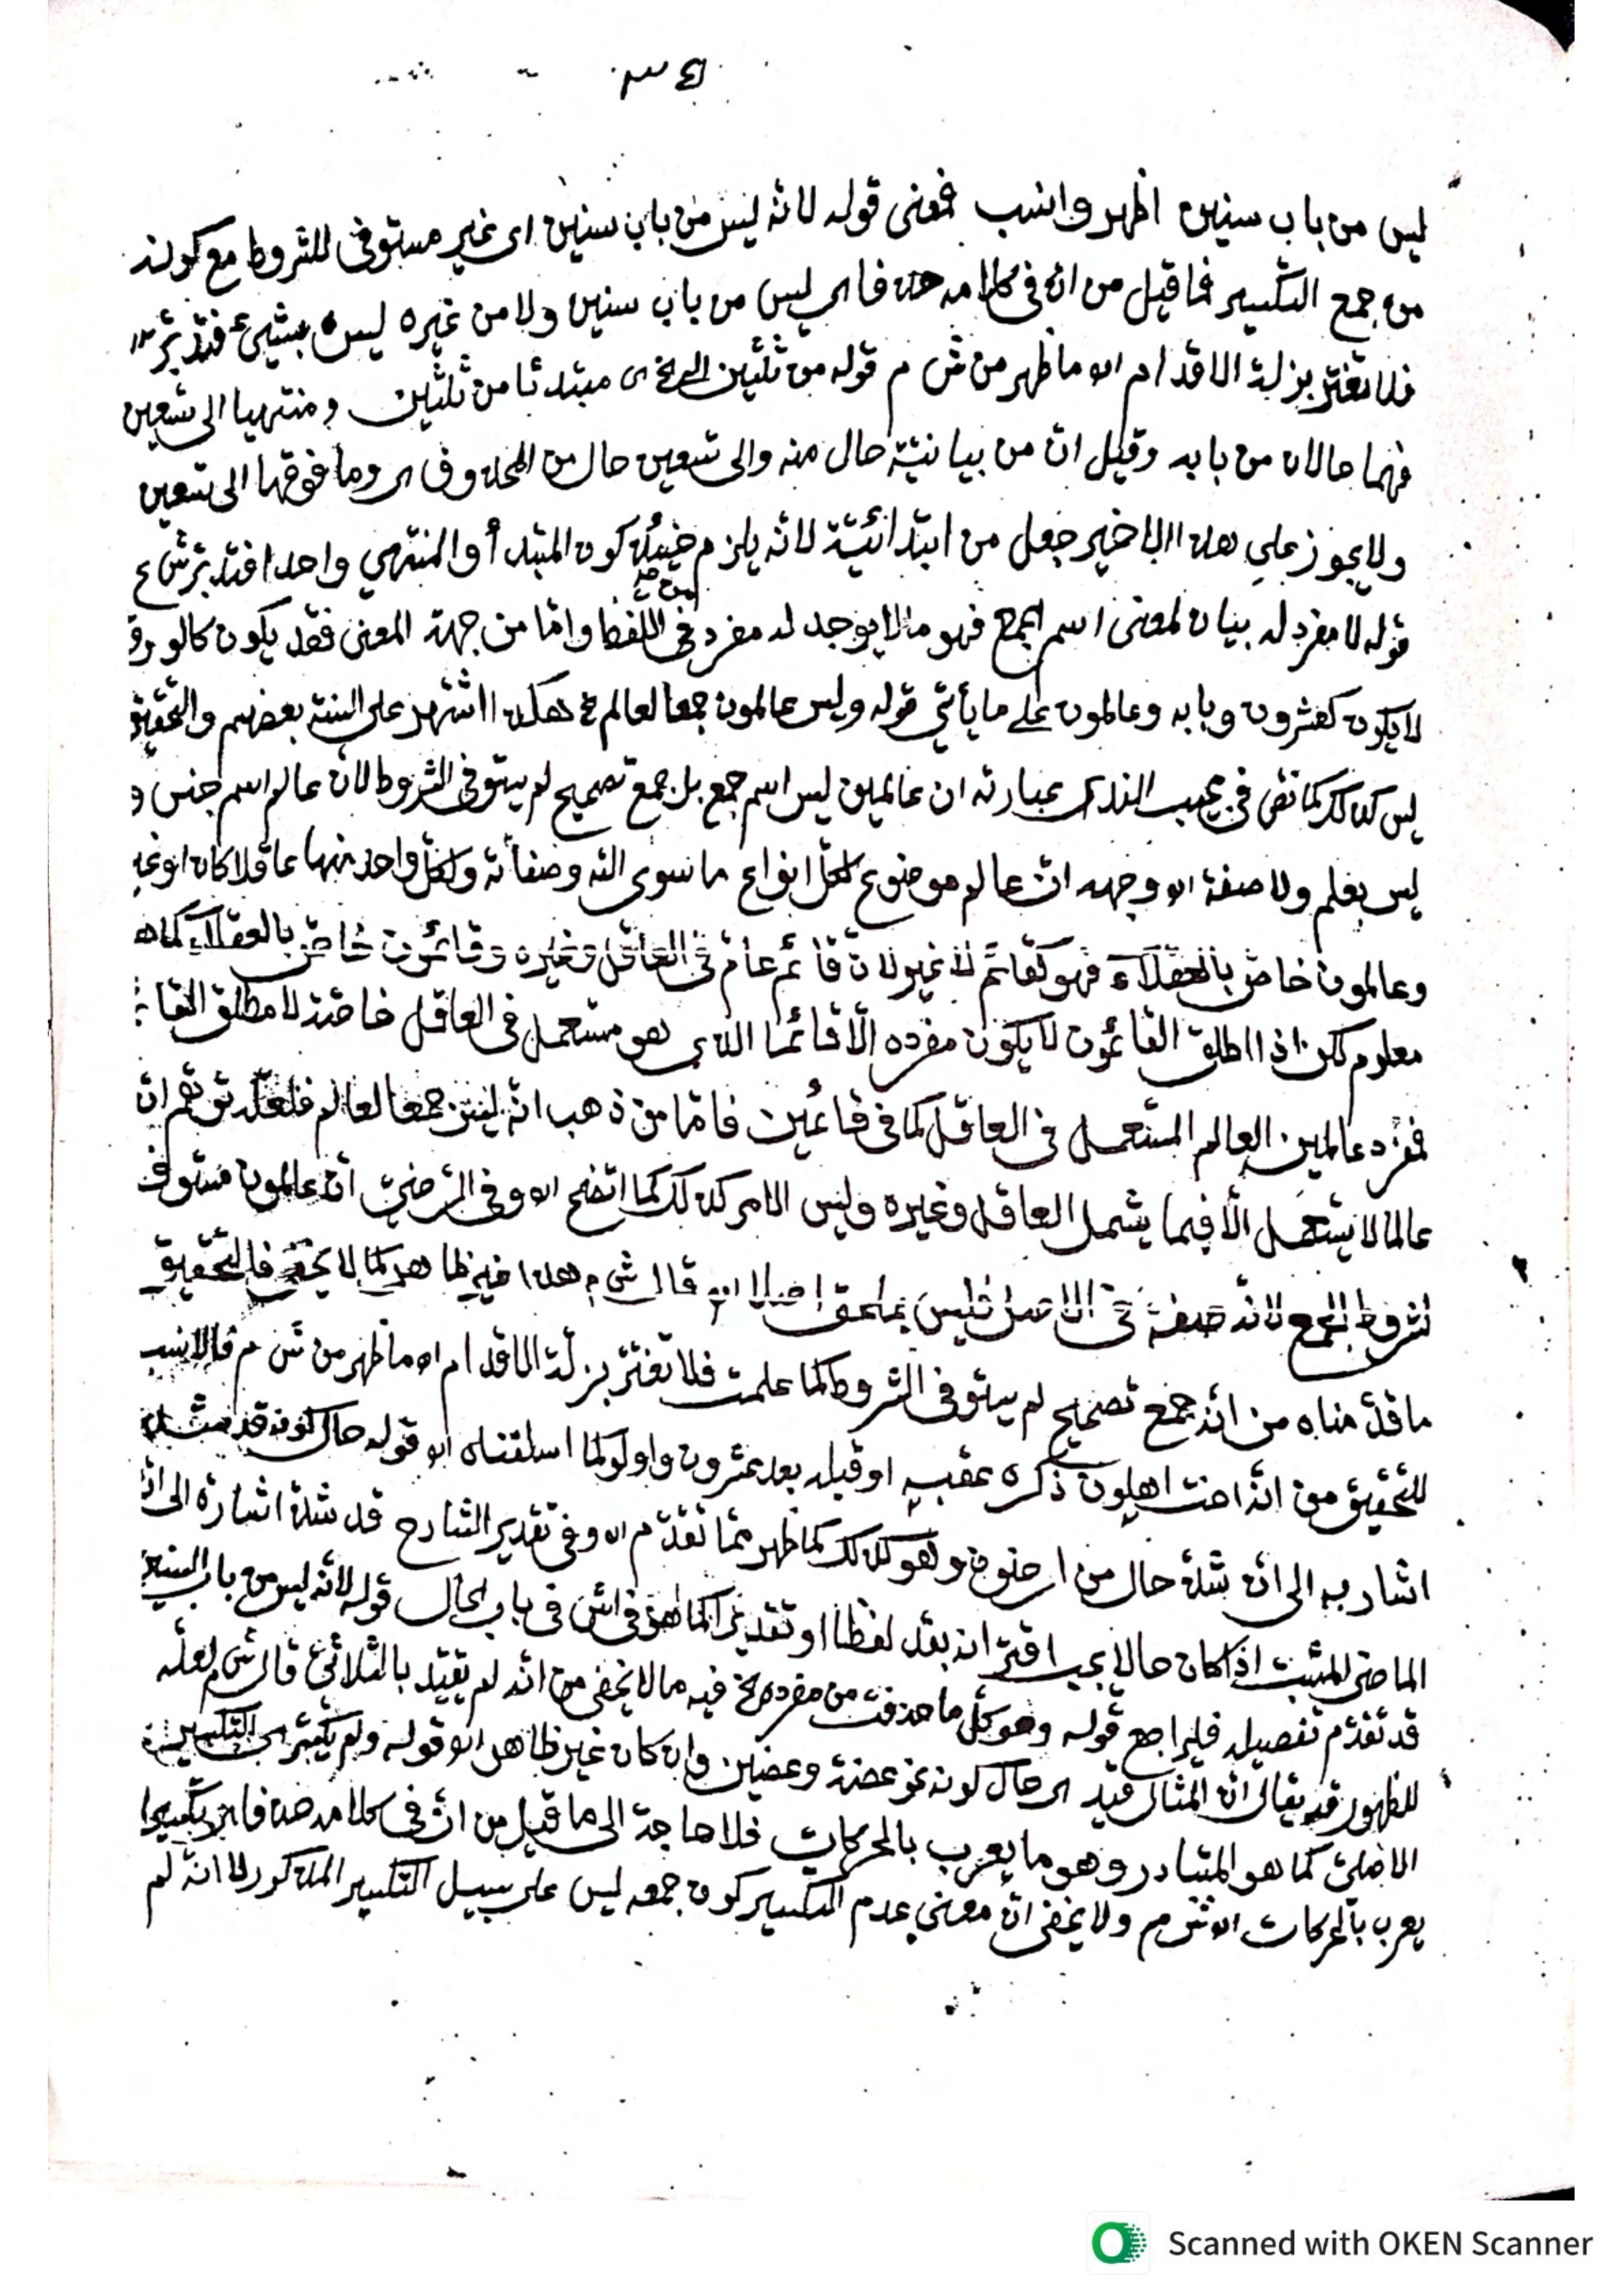 ليس من باب سنين اظهر وانسب فمعنى قوله لانه ليس من باب سنين اى غير مستوفى للشروط مع كونه
من جمع التكسير فما قيل من انه فى كلامه حذفا اى ليس من باب سنين ولا من غيره ليس بشيئ فتدبّر
فلا تغتر بزلة الاقدام اه ما ظهر من ش م قوله من ثلثين الخ اى مبتدئا من ثلثين ومنتهيا الى تسعين
فهما حالان من بابه وقيل انّ من بيانيّة حال منه والى تسعين حال من المحذوف اى وما فوقها الى تسعين
ولا يجوز على هذا الاخير جعل من ابتدائيّة لانه يلزم حينئذ كون المبتدأ والمنتهى واحدا فتدبّر ش ع
قوله لا مفرد له بيان لمعنى اسم الجمع فهو ما لا يوجد له مفرد فى اللفظ وامّا من جهة المعنى فقد يكون
لا يكون كعشرون وبابه وعالمون على ما يأتى قوله وليس عالمون جمعا لعالم هكذا اشتهر على السنة بعضهم والتحقيق
ليس كذلك كما نصّ فى مجيب الندا عبارته ان عالمين ليس اسم جمع بل جمع تصحيح لم يستوفى الشروط لان عالم اسم جنس و
ليس بعلم ولا صفة اه وجهه انّ عالم موضوع لكلّ انواع ما سوى الله وصفاته ولكلّ واحد منها عاقلا كان او غير
وعالمون خاصّ بالعقلاء فهو كقائم لا غير لان قائم عامّ فى العاقل وغيره وقائمون خاصّ بالعقلاء كما هـ
معلوم لكن اذا اطلق القائمون لا يكون مفرده الّا قائما الذى هو مستعمل فى العاقل خاصّة لا مطلق القا
فمفرد عالمين العالم المستعمل فى العاقل كما فى قائمين فامّا من ذهب انّه ليس جمعا لعالم فلعلّه توهّم انّ
عالما لا يستعمل الّا فيما يشمل العاقل وغيره وليس الامر كذلك كما اتضح اه وفى الرضىّ انّ عالمون مستوف
لشروط الجمع لانّه صفة فى الاصل فليس بملحق اصلا اه قال ش م هذا فيه ظاهر كما لا يخفى فالتحقيق
ما قدّمناه من انّه جمع تصحيح لم يستوفى الشروط كما علمت فلا تغترّ بزلّة الاقدام اه ما ظهر من ش م فالانسب
للتحقيق من انّه اخت اهلون ذكره عقبه او قبله بعد عشرون واولو لما اسلفناه اه قوله حال كونه قد
اشار به الى انّ شذّ حال من ارضون وهو كذلك كما ظهر ممّا تقدّم اه وفى تقدير الشارح قد شذّ اشارة الى انّ
الماضى المثبت اذا كان حالا يجب اقترانه بقد لفظا او تقديرا كما هو فى اش فى باب الحال قوله لانه ليس من باب السنين
قد تقدّم تفصيله فليراجع قوله وهو كلّ ما حذفت من مفرده الخ فيه ما لا يخفى من انّه لم يقيّد بالثلاثىّ قال ش م لعلّه
للظهور قد يقال انّ المثال قيد اى حال كونه نحو عضة وعضين وان كان غير ظاهر اه قوله ولم يكسّر اى التكسير
الاصلىّ كما هو المتبادر وهو ما يعرب بالحركات فلا حاجة الى ما قيل من انّ فى كلامه حذفا اى تكسيرا
يعرب بالحركات اه ش م ولا يخفى انّ معنى عدم التكسير كون جمعه ليس على سبيل التكسير المذكور لا انّه لم
Scanned with OKEN Scanner